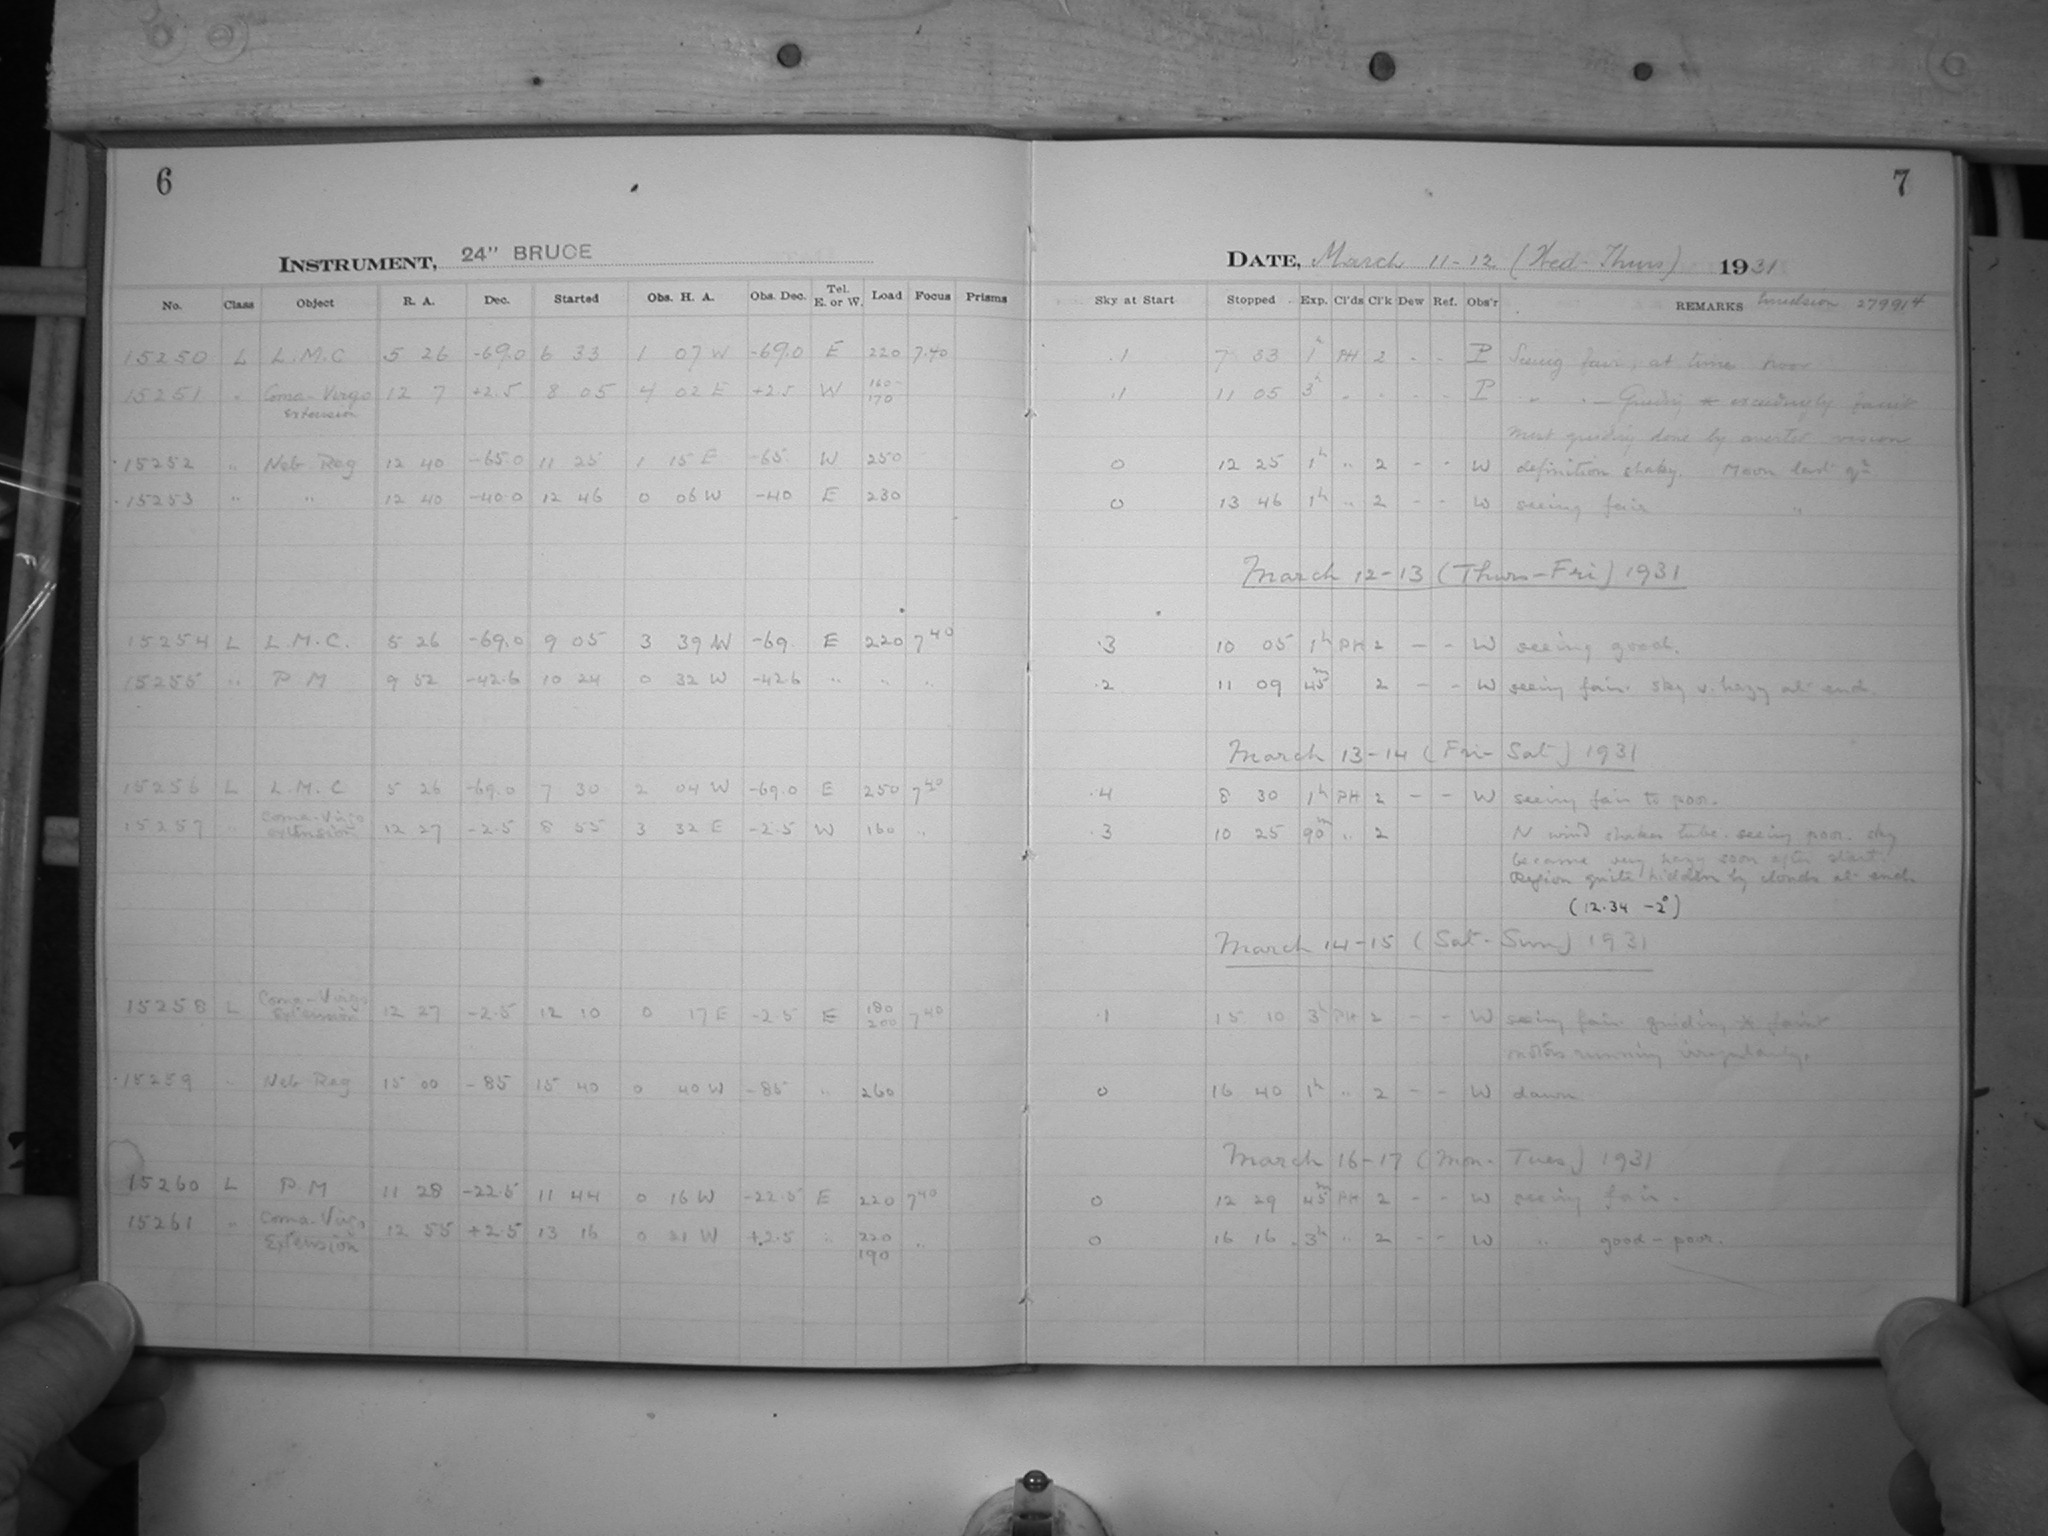 6
7
INSTRUMENT, 24" BRUCE
DATE, March 11-12 (Wed-Thurs) 1931
No. Class Object R. A. Dec. Started Obs. H. A. Obs. Dec. Tel. E. or W. Load Focus Prisms Sky at Start Stopped Exp. Cl'ds Cl'k Dew Ref. Obs'r REMARKS Emulsion 279914
15250 L L.M.C 5 26 -69.0 6 33 1 07 W -69.0 E 220 7.40 .1 7 33 1h PH 2 - - P Seeing fair, at times poor
15251 " Coma-Virgo extension 12 7 +2.5 8 05 4 02 E +2.5 W 160-170 .1 11 05 3h " - - - P " " - Guiding * exceedingly faint
most guiding done by averted vision
15252 " Neb Reg 12 40 -65.0 11 25 1 15 E -65 W 250 0 12 25 1h " 2 - - W definition shaky. Moon last qr
15253 " " 12 40 -40.0 12 46 0 06 W -40 E 230 0 13 46 1h " 2 - - W seeing fair "
March 12-13 (Thurs-Fri) 1931
15254 L L.M.C. 5 26 -69.0 9 05 3 39 W -69. E 220 7 40 .3 10 05 1h PH 2 - - W seeing good.
15255 " P M 9 52 -42.6 10 24 0 32 W -42.6 " " " .2 11 09 45m 2 - - W seeing fair. sky v. hazy at end.
March 13-14 (Fri-Sat) 1931
15256 L L.M.C 5 26 -69.0 7 30 2 04 W -69.0 E 250 7 40 .4 8 30 1h PH 2 - - W seeing fair to poor.
15257 " Coma-Virgo extension 12 27 -2.5 8 55 3 32 E -2.5 W 160 " .3 10 25 90m " 2 N wind shakes tube. seeing poor. sky
became very hazy soon after start.
Region quite hidden by clouds at end.
(12.34 -2°)
March 14-15 (Sat-Sun) 1931
15258 L Coma-Virgo Extension 12 27 -2.5 12 10 0 17 E -2.5 E 180 200 7 40 .1 15 10 3h PH 2 - - W seeing fair guiding * faint
motors running irregularly.
15259 " Neb Reg 15 00 -85 15 40 0 40 W -85 " 260 0 16 40 1h " 2 - - W dawn
March 16-17 (Mon-Tues) 1931
15260 L P M 11 28 -22.5 11 44 0 16 W -22.5 E 220 7 40 0 12 29 45m PH 2 - - W seeing fair.
15261 " Coma-Virgo Extension 12 55 +2.5 13 16 0 21 W +2.5 " 220 190 " 0 16 16 3h " 2 - - W " good-poor.